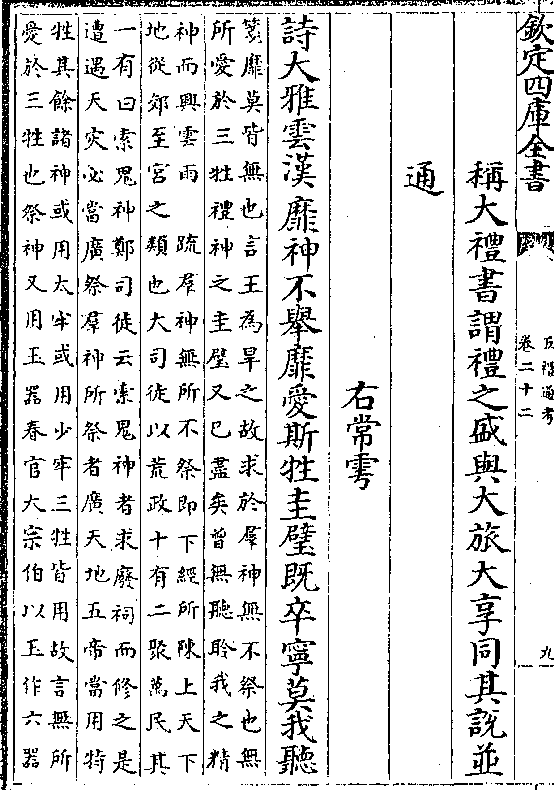 欽定四庫全書
五禮通考
卷二十二
九
稱大禮書謂禮之盛與大旅大享同其説並
通
右常雩
詩大雅雲漢靡神不舉靡愛斯牲圭璧既卒寧莫我聽
箋靡莫皆無也言王為旱之故求於羣神無不祭也無
所愛於三牲禮神之圭璧又已盡矣曾無聽聆我之精
神而興雲雨 疏羣神無所不祭即下經所陳上天下
地從郊至宮之類也大司徒以荒政十有二聚萬民其
一有曰索鬼神鄭司徒云索鬼神者求廢祠而修之是
遭遇天灾必當廣祭羣神所祭者廣天地五帝當用特
牲其餘諸神或用太牢或用少牢三牲皆用故言無所
愛於三牲也祭神又用玉器春官大宗伯以玉作六器